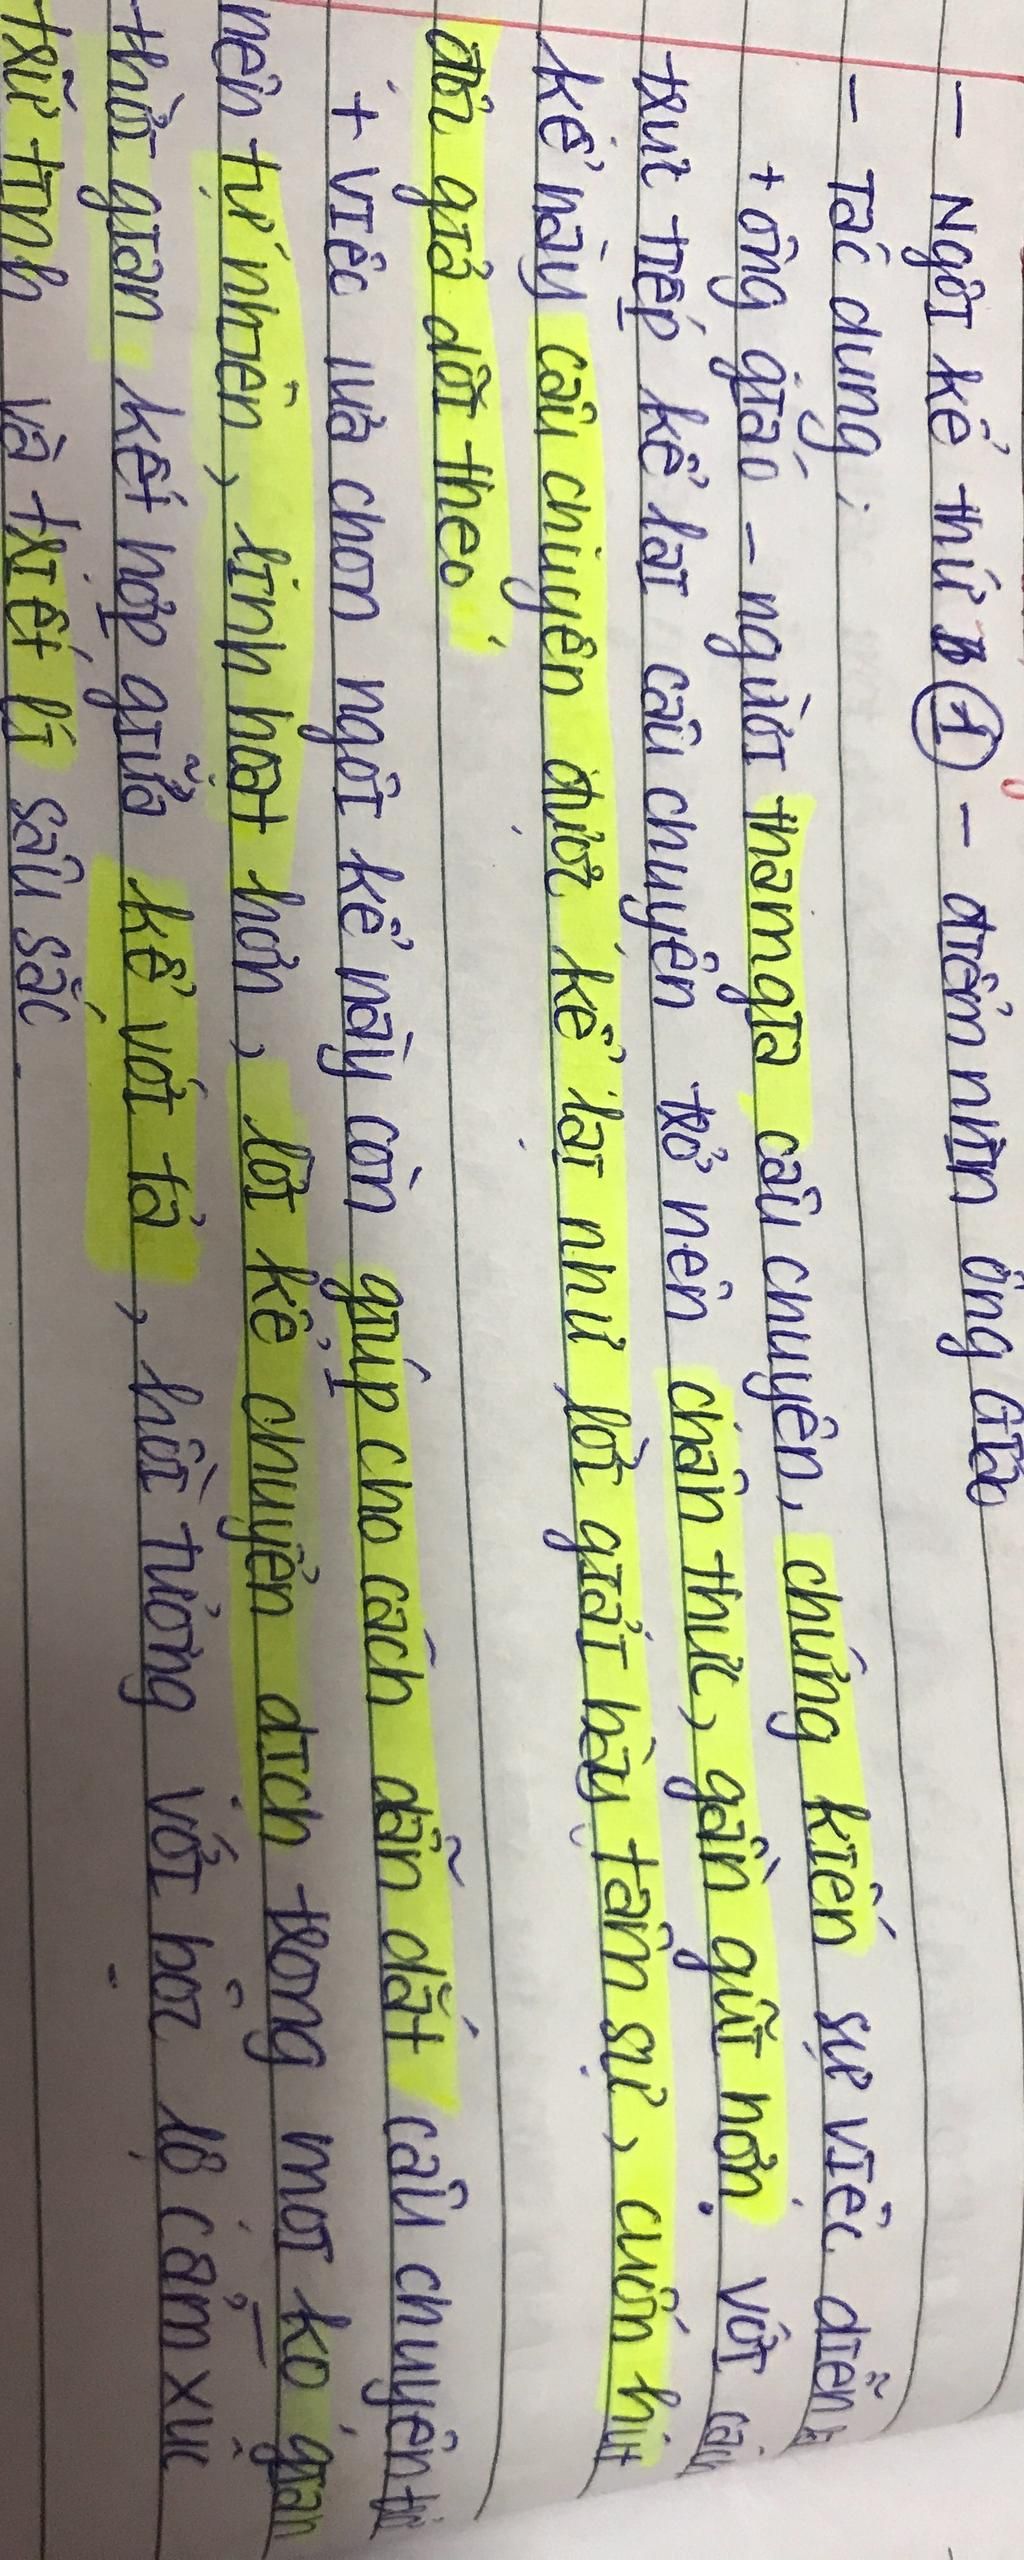 - Ngôi kể thứ ① - điểm nhìn ông Giáo
- Tác dụng:
+ ông giáo - người tham gia câu chuyện, chứng kiến sự việc diễn
trực tiếp kể lại câu chuyện trở nên chân thực, gần gũi hơn. Với
kể này câu chuyện được kể lại như lời giãi bày tâm sự, cuốn hút
độc giả dõi theo
+ Việc lựa chọn ngôi kể này còn giúp cho cách dẫn dắt câu chuyện
nên tự nhiên, linh hoạt hơn, lời kể chuyển dịch trong mọi ko gian
thời gian, kết hợp giữa kể với tả, hồi tưởng với bộc lộ cảm xúc
trữ tình và triết lí sâu sắc.